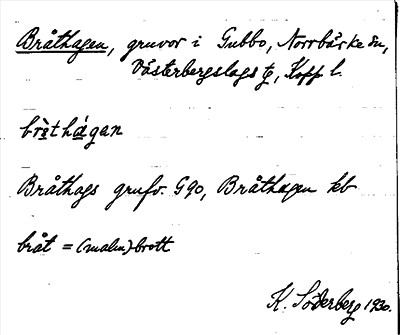 Bråthagen, gruvor i Gubbo, Norrbärke sn,
Västerbergslags tg, Kopp l.
brèthágan
Bråthags grufv. G90, Bråthagen kb
bråt = (malm)-brott
K. Söderberg 1930.